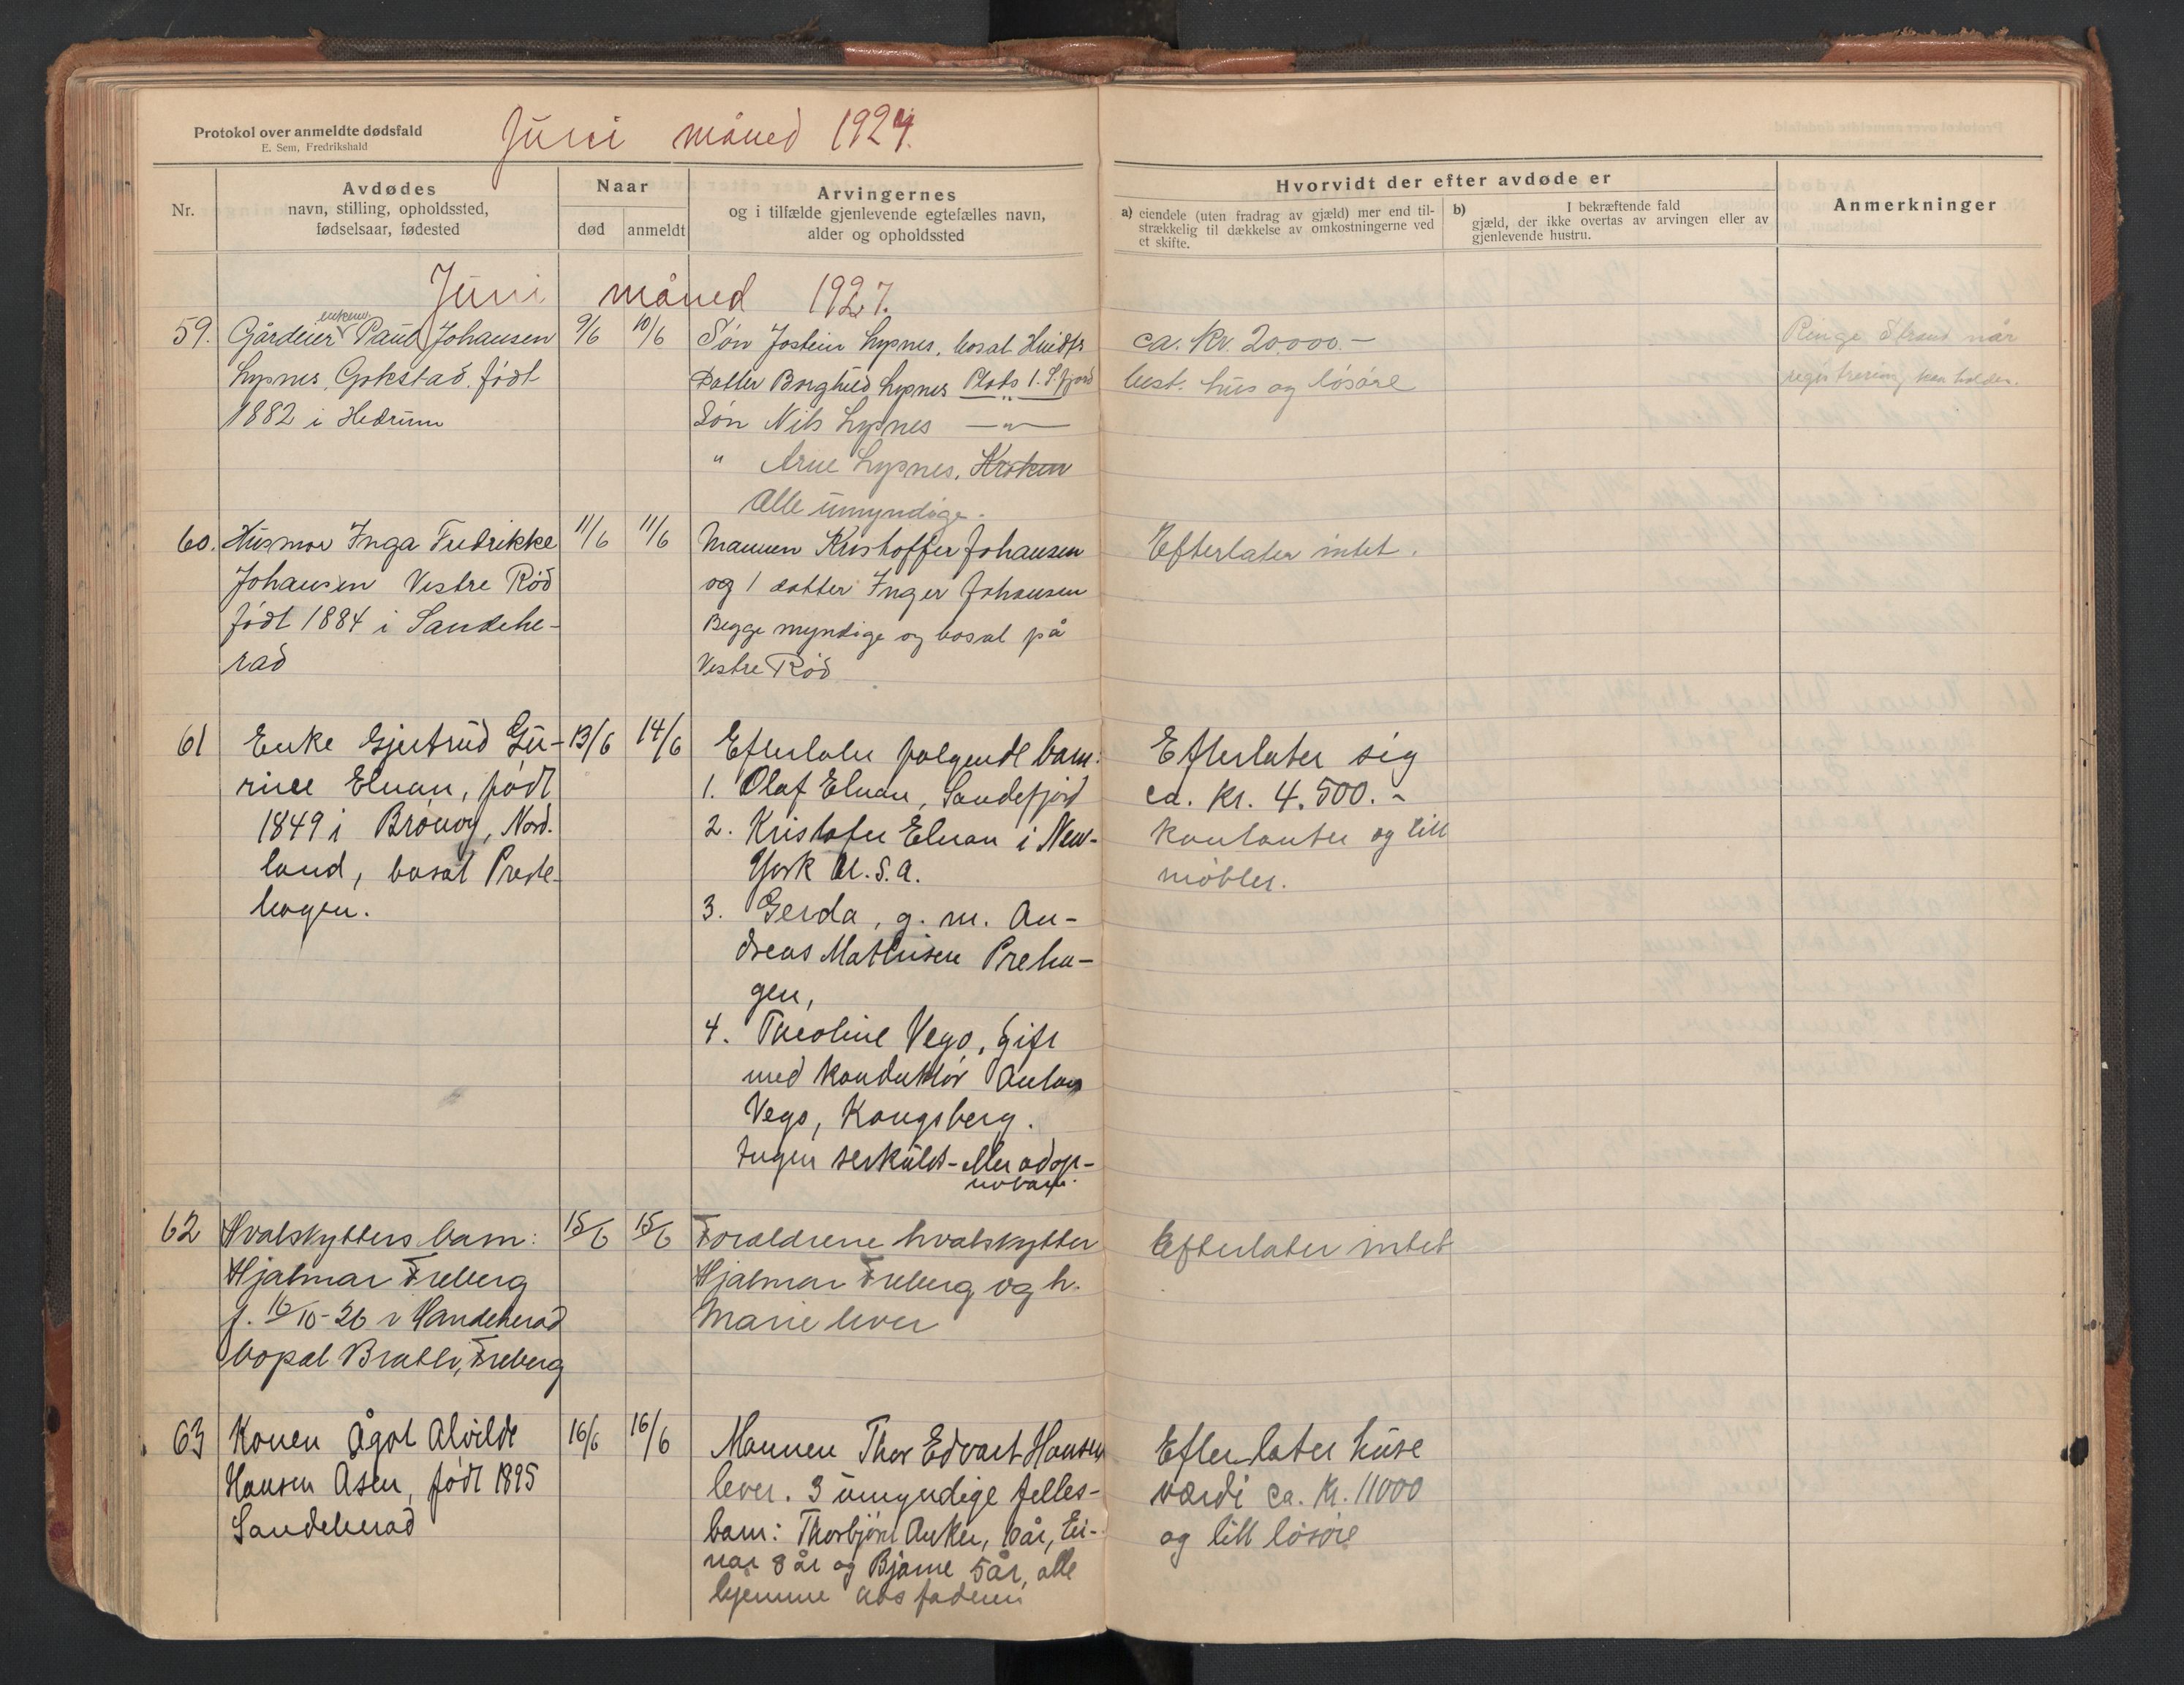 Protokol over anmeldte dødsfald
E. Sem, Fredrikshald
Juni måned 1927.
Nr.
Avdødes
navn, stilling, opholdssted,
fødselsaar, fødested
Naar
død
anmeldt
Arvingernes
og i tilfælde gjenlevende egtefælles navn,
alder og opholdssted
Hvorvidt der efter avdøde er
a) eiendele (uten fradrag av gjæld) mer end til-
strækkelig til dækkelse av omkostningerne ved
et skifte.
b) I bekræftende fald
gjæld, der ikke overtas av arvingen eller av
gjenlevende hustru.
Anmerkninger
Juni måned 1927.
59.
Gårdeier enkem. Paul Johansen
Lysnes, Gokstad, født
1882 i Hedrum
9/6
10/6
Søn Jostein Lysnes, bosat
Datter Borghild Lysnes
Søn Nils Lysnes — " —
" Arne Lysnes,
Alle umyndige.
ca. Kr. 20,000.—
best. hus og løsøre
Ringe Strand når
registrering kan holdes.
60.
Husmor Inga Fredrikke
Johansen Vestre Rød
født 1884 i Sandehe-
rad
11/6
11/6
Mannen Kristoffer Johansen
og 1 datter Inger Johansen
Begge myndige og bosat på
Vestre Rød
Efterlater intet.
61
Enke Gjertrud Gu-
rine Elvan, født
1849 i Brönöy, Nord-
land, bosat Preste-
hagen.
13/6
14/6
Efterlater følgende barn:
1. Olaf Elvan, Sandefjord
2. Kristofer Elvan i New-
York U.S.A.
3. Gerda, g. m. An-
dreas Mathisen Preha-
gen,
4. Theoline Vego, gift
med konduktör Anton
Vego, Kongsberg.
Ingen serkuld- eller adop-
tivbarn.
Efterlater sig
ca. kr. 4.500.-
kontanter og litt
møbler.
62
Hvalskytters barn:
Hjalmar Freberg
f. 16/10-26 i Sandeherad
bopæl Bratli, Freberg
15/6
15/6
Forældrene hvalskytter
Hjalmar Freberg og h.
Marie lever
Efterlater intet
63
Konen Ågot Alvilde
Hansen Åsen, født 1895
Sandeherad
16/6
16/6
Mannen Thor Edvart Hansen
lever. 3 umyndige felles-
barn: Thorbjörn Anker, 10 år, Ei-
nar 8 år og Bjarne 5 år, alle
hjemme hos faderen
Efterlater huse
værdi ca. kr. 11000
og litt løsøre